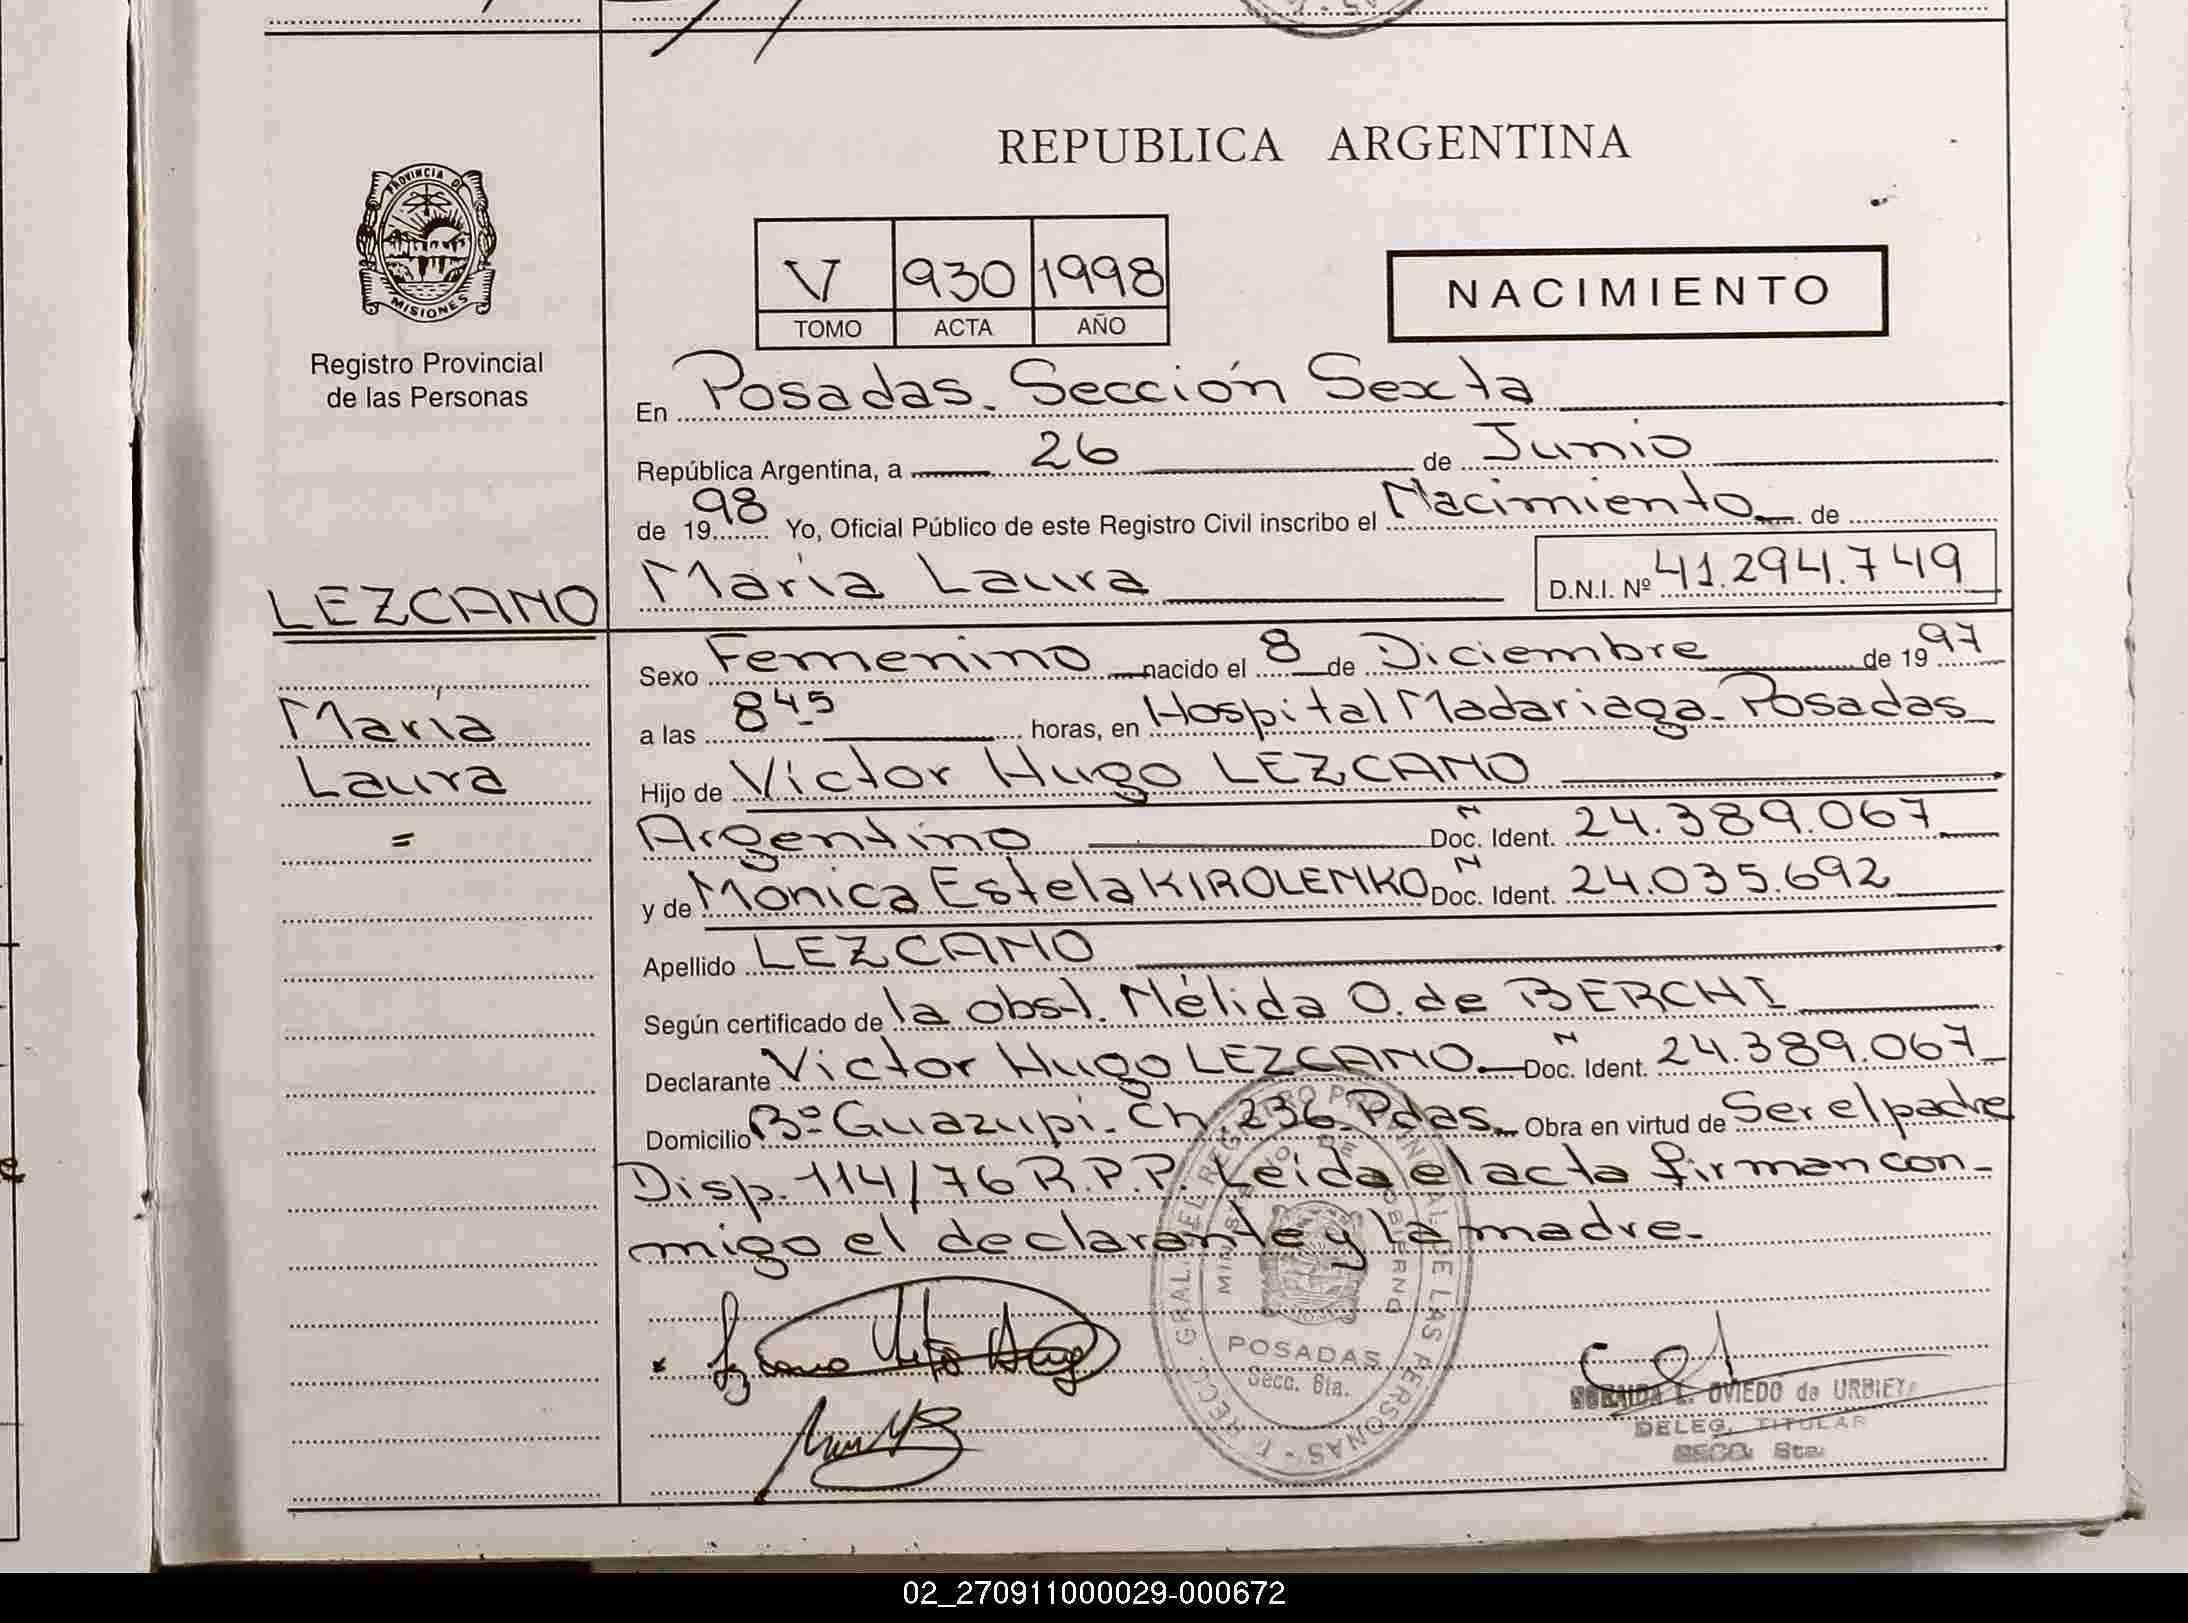 REPUBLICA ARGENTINA
PROVINCIA DE
MISIONES
Registro Provincial
de las Personas
V 930 1998
TOMO ACTA AÑO
NACIMIENTO
En Posadas. Sección Sexta
República Argentina, a 26 de Junio
de 1998 Yo, Oficial Público de este Registro Civil inscribo el Nacimiento de
LEZCANO
María Laura D.N.I. Nº 41.294.749
María
Laura
=
Sexo Femenino nacido el 8 de Diciembre de 1997
a las 8 45 horas, en Hospital Madariaga. Posadas
Hijo de Víctor Hugo LEZCANO
Argentino Doc. Ident. N 24.389.067
y de Mónica Estela KIROLENKO Doc. Ident. N 24.035.692
Apellido LEZCANO
Según certificado de la obst. Nélida O. de BERCHI
Declarante Víctor Hugo LEZCANO Doc. Ident. N 24.389.067
Domicilio Bº Guazupi. Ch. 236 Pdas. Obra en virtud de Ser el padre
Disp. 114/76 R.P.P. Leída el acta firman con-
migo el declarante y la madre.
POSADAS
Secc. 6ta.
OVIEDO de URBIETA
DELEG. TITULAR
02_270911000029-000672